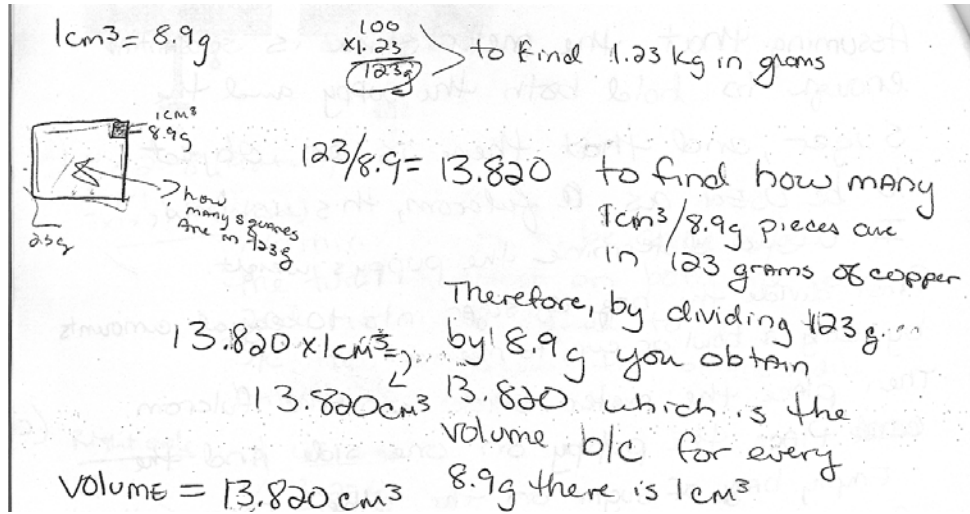 1cm³ = 8.9g
100
x1.23
123g
to find 1.23 kg in grams
1cm³
8.9g
how
many squares
are in 123g
123/8.9 = 13.820 to find how many
1cm³/8.9g pieces are
in 123 grams of copper
Therefore, by dividing 123g
13.820 x 1cm³ =
by 8.9g you obtain
13.820cm³
13.820 which is the
volume b/c for every
8.9g there is 1cm³
volume = 13.820cm³